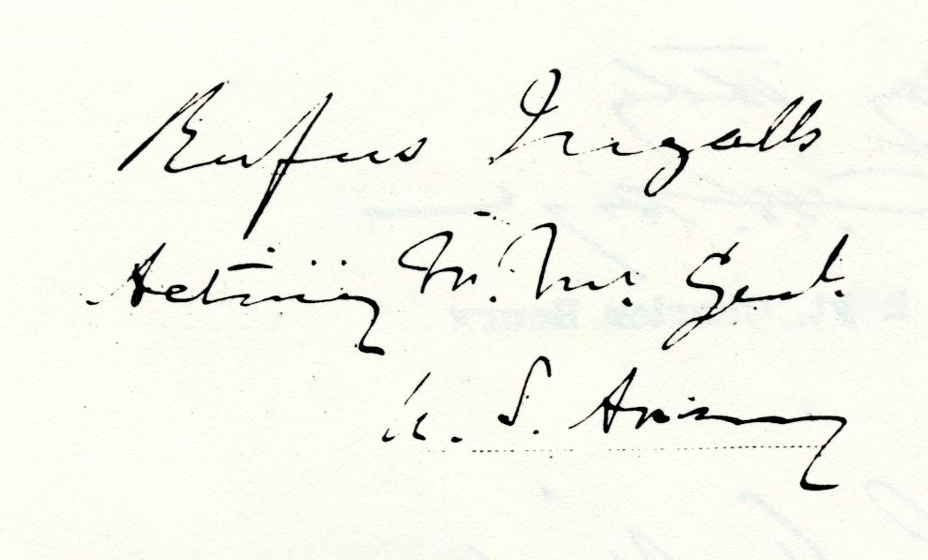 Rufus Ingalls
Acting Q. M. Genl.
U. S. Army